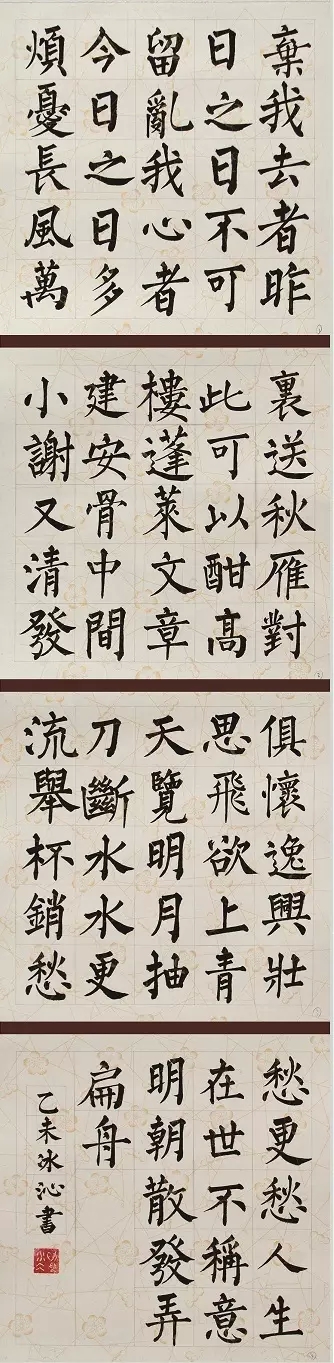 棄我去者昨
日之日不可
留亂我心者
今日之日多
煩憂長風萬
裏送秋雁對
此可以酣高
樓蓬萊文章
建安骨中間
小謝又清發
俱懷逸興壯
思飛欲上青
天覽明月抽
刀斷水水更
流舉杯銷愁
愁更愁人生
在世不稱意
明朝散發弄
扁舟
乙未冰沁書